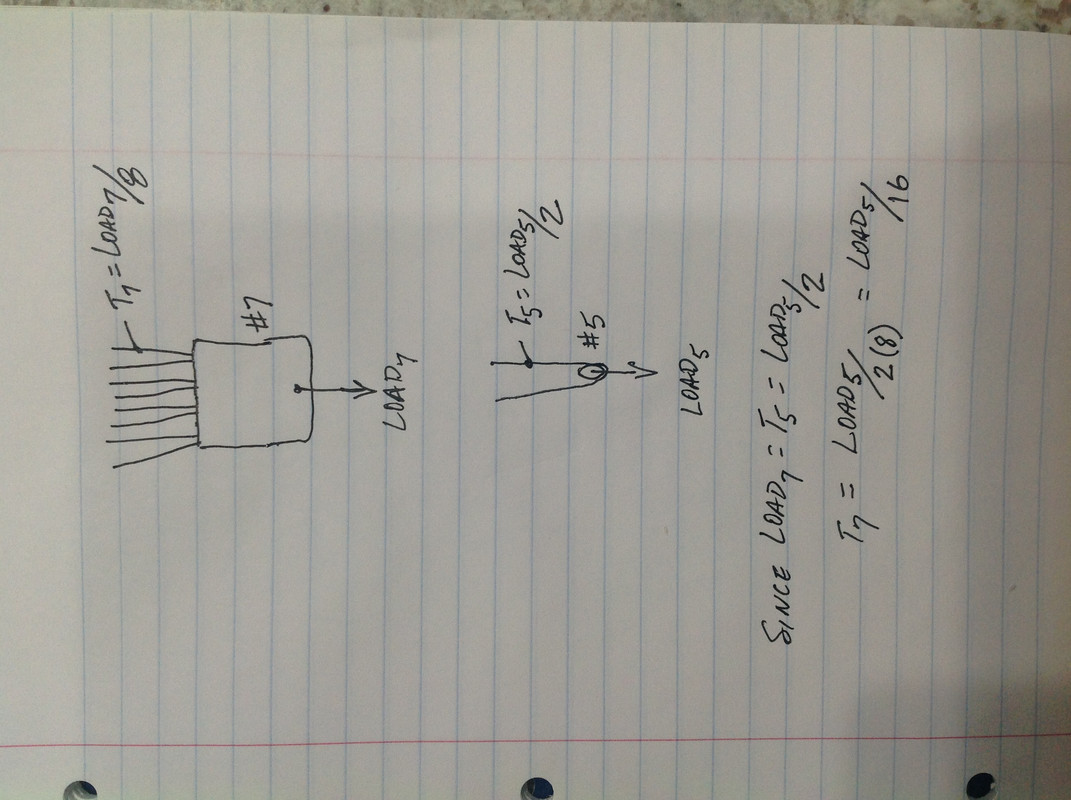 T₇ = LOAD₇/8
#7
LOAD₇
T₅ = LOAD₅/2
#5
LOAD₅
SINCE LOAD₇ = T₅ = LOAD₅/2
T₇ = LOAD₅/2(8) = LOAD₅/16